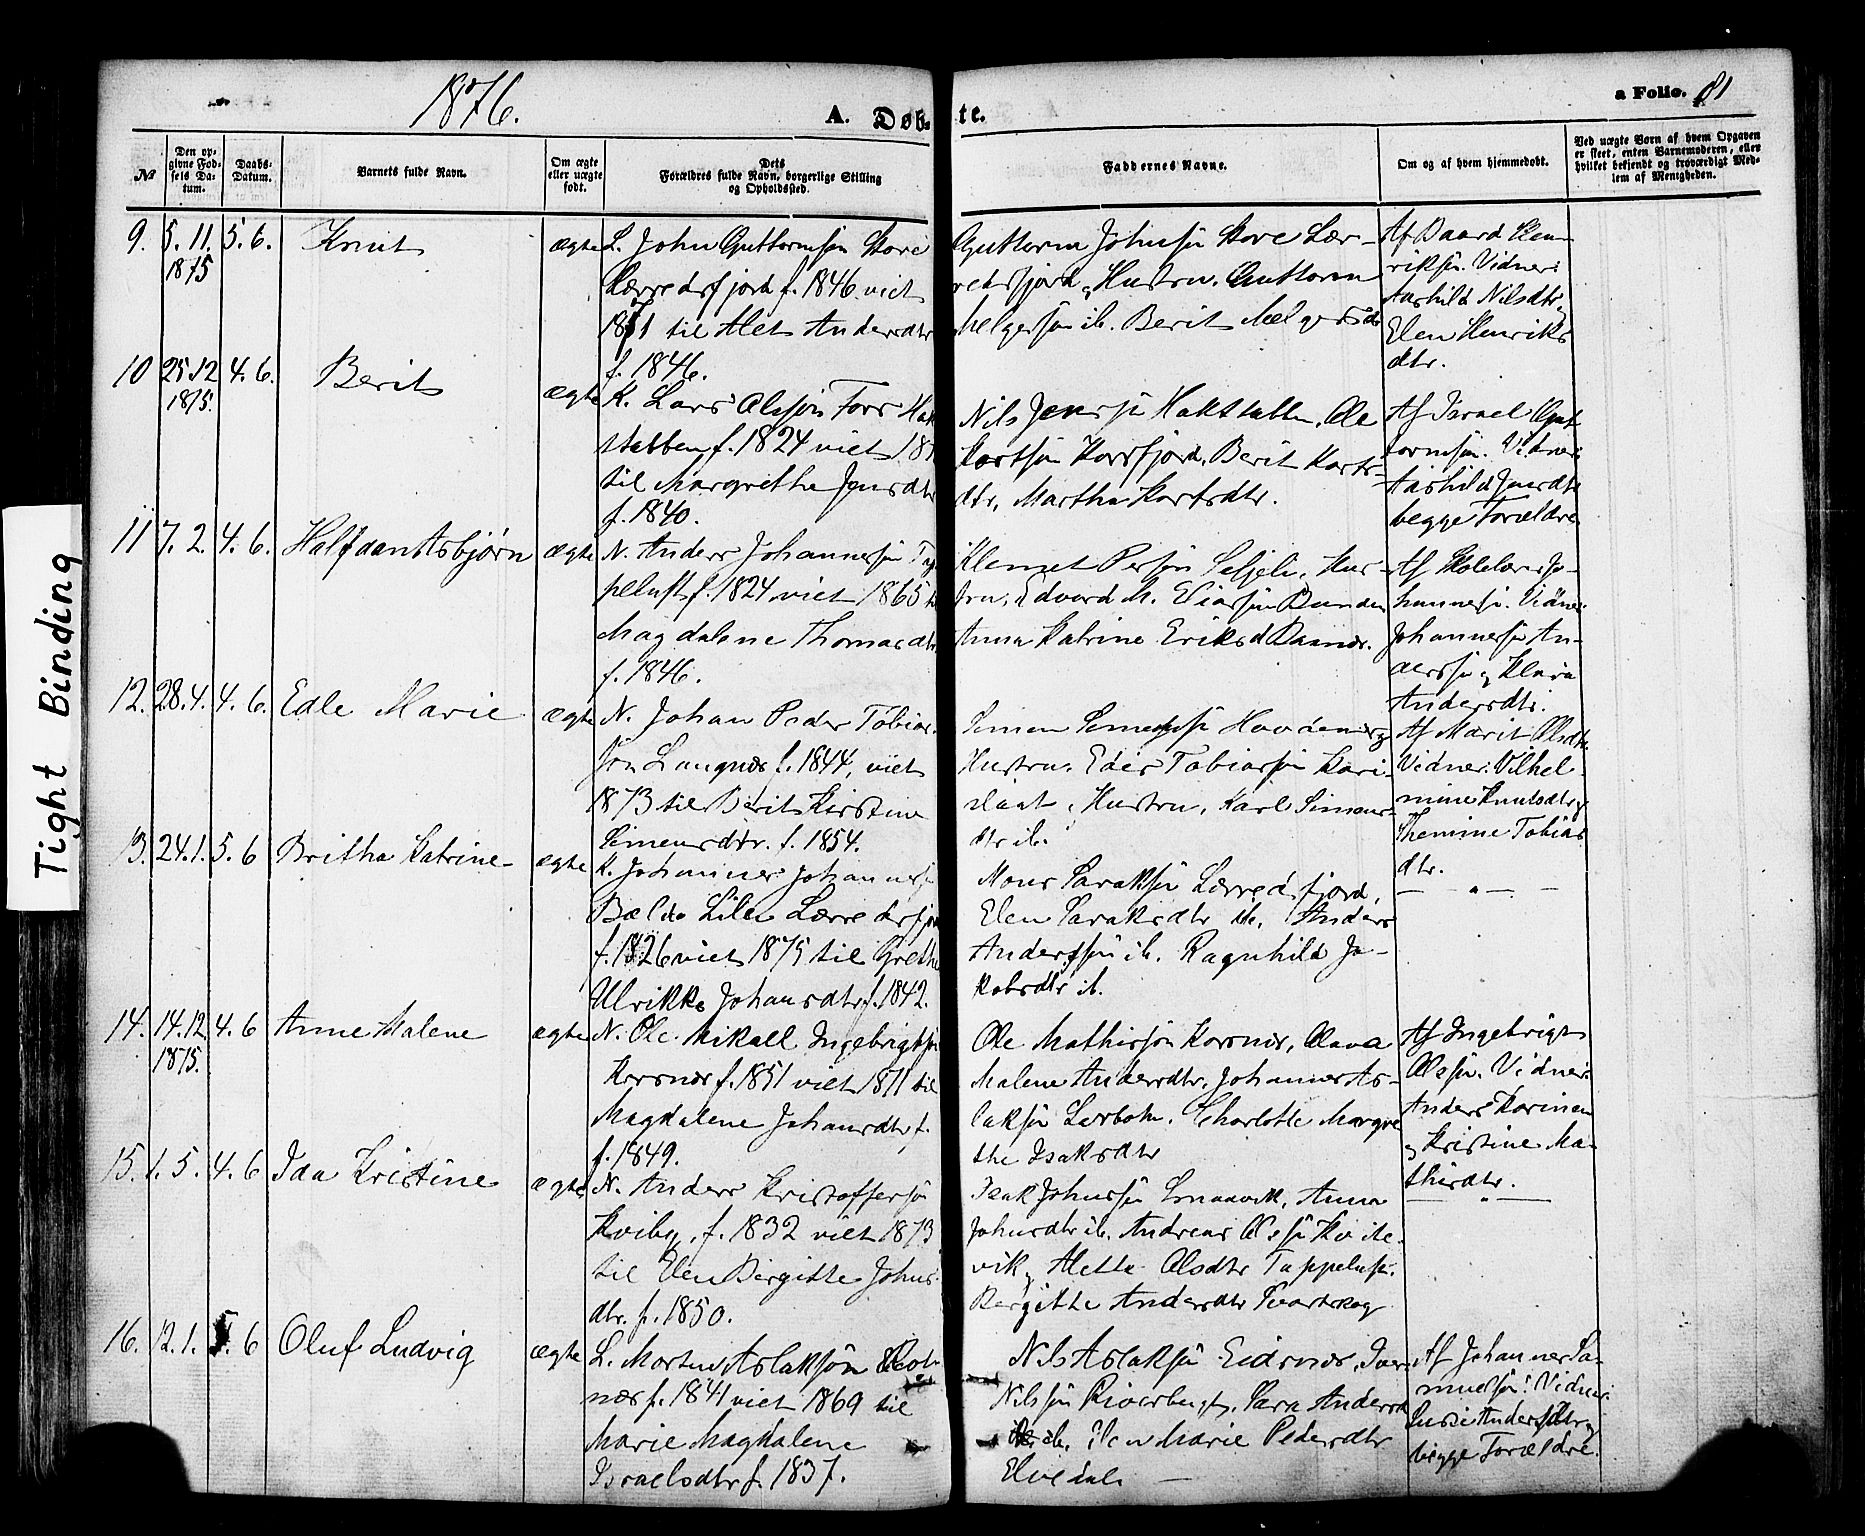 1876.
A. Døb-
te.
a Folio. 81
№
Den opgivne Fødsels Datum.
Daabs-Datum.
Barnets fulde Navn.
Om ægte eller uægte født.
Dets Forældres fulde Navn, borgerlige Stilling og Opholdssted.
Faddernes Navne.
Om og af hvem hjemmedøbt.
Ved uægte Børn af hvem Opgaven er skeet, enten Barnemoderen, eller hvilket bekjendt og troværdigt Medlem af Menigheden.
9. 5. 11. 1875 5. 6. Knut ægte
L. John Guttormsøn Store
Lerredsfjord f. 1846 viet
1871 til Alet Andersdtr
f. 1846.
Guttorm Johnsøn Store Lær-
redsfjord, Hustru. Guttorm
Helgesøn ib. Berit
Af Baard Hen-
riksøn. Vidner:
Aashild Nilsdtr,
Elen Henriks
dtr.
10 25.12 1875. 4. 6. Berit ægte
K. Lars Olssøn Fors Hak
stabben f. 1824 viet 187
til Margrethe Jensdtr
f. 1840.
Nils Jenssøn Hakstabben, Ole
Kortsøn Korsfjord, Berit Korts-
dtr, Martha Kortsdtr.
Af Israel Gut
tormsøn. Vidner:
Aashild Jensdtr
begge Forældre
11 7. 2. 4. 6. Halfdan Asbjørn ægte
N. Anders Johannessøn Tap
peluft f. 1824 viet 1865 t
Magdalene Thomasdtr
f. 1846.
Klemet Persøn Seljeli, Hus-
tru, Edvard M. Eliassøn
Anna Katrine Eriksd
Af Skolelærer Jo-
hannessøn. Vidner:
Johannes An-
derssøn og Klara
Andersdtr.
12. 28.4. 4. 6. Edle Marie ægte
N. Johan Peder Tobias-
søn Langnæs f. 1844, viet
1873 til Berit Kirstine
Simensdtr. f. 1854.
Simen Simensøn
Hustru. Edis Tobiassøn
Hustru, Karl Simens-
dtr ib.
Af Marit Olsdtr
Vidner: Vilhel-
mine Knutsdtr og
Themine Tobias
dtr.
13. 24.1. 5. 6 Britha Katrine ægte
K. Johannes Johannessøn
Bælde Lille Lerredsfjord
f. 1826 viet 1875 til Grethe
Ulrikke Johansdtr f. 1842.
Mons Saraksøn Lerredsfjord,
Elen Saraksdtr ib, Anders
Anderssøn ib. Ragnhild Ja-
kobsdtr ib.
— " —
14. 14.12. 1875. 4. 6 Anne Malene ægte
N. Ole Mikall Ingebrigtsøn
Korsnæs f. 1851 viet 1871 til
Magdalene Johansdtr, f.
f. 1849.
Ole Mathissøn Korsnæs, Olava
Malene Andersdtr, Johannes As-
laksøn Lerbotn. Charlotte Margre
the Isaksdtr
Af Ingebrigt
Olssøn. Vidner:
Anders Karinen
og Kristine Ma-
thisdtr.
15. 1. 5. 4. 6 Ida Kristine ægte
N. Anders Kristoffersøn
Kviby, f. 1832 viet 1873
til Elen Birgitte Johns-
dtr. f. 1850.
Isak Johnsøn Smaavik, Anna
Johnsdtr ib. Andreas Olssøn Kvite-
vik, Alette Olsdtr Tappeluft.
Bergitte Andersdtr Svartskog
— " —
16. 12.1. 5. 6 Oluf Ludvig ægte
L. Morten Aslaksøn
næs f. 1841 viet 1869 til
Marie Magdalene
Israelsdtr f. 1837.
Nils Aslaksøn Eidsnæs, Iver
Nilssøn Riverbugt, Sara Andersd
ib. Elen Marie Pedersdtr
Elvedal —
Af Johannes Sa-
muelsøn. Vidner:
Andersdtr og
begge Forældre.
Tight Binding